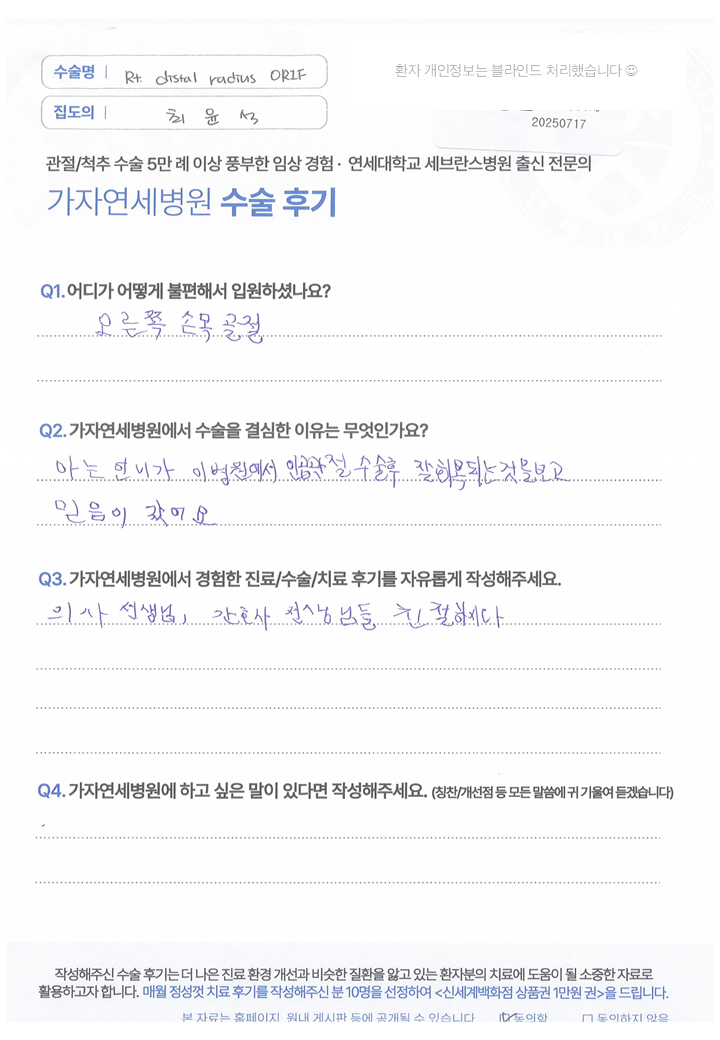 수술명 | Rt. distal radius ORIF
환자 개인정보는 블라인드 처리했습니다 ☺
집도의 | 최 윤 석
20250717
관절/척추 수술 5만 례 이상 풍부한 임상 경험 · 연세대학교 세브란스병원 출신 전문의
가자연세병원 수술 후기
Q1. 어디가 어떻게 불편해서 입원하셨나요?
오른쪽 손목 골절
Q2. 가자연세병원에서 수술을 결심한 이유는 무엇인가요?
아는 언니가 이병원에서 인공관절 수술후 잘회복되는것을보고
믿음이 갔어요
Q3. 가자연세병원에서 경험한 진료/수술/치료 후기를 자유롭게 작성해주세요.
의사 선생님, 간호사 선생님들 친절하시다
Q4. 가자연세병원에 하고 싶은 말이 있다면 작성해주세요. (칭찬/개선점 등 모든 말씀에 귀 기울여 듣겠습니다)
작성해주신 수술 후기는 더 나은 진료 환경 개선과 비슷한 질환을 앓고 있는 환자분의 치료에 도움이 될 소중한 자료로
활용하고자 합니다. 매월 정성껏 치료 후기를 작성해주신 분 10명을 선정하여 <신세계백화점 상품권 1만원 권>을 드립니다.
본 자료는 홈페이지, 원내 게시판 등에 공개될 수 있습니다 ☑ 동의함 ☐ 동의하지 않음